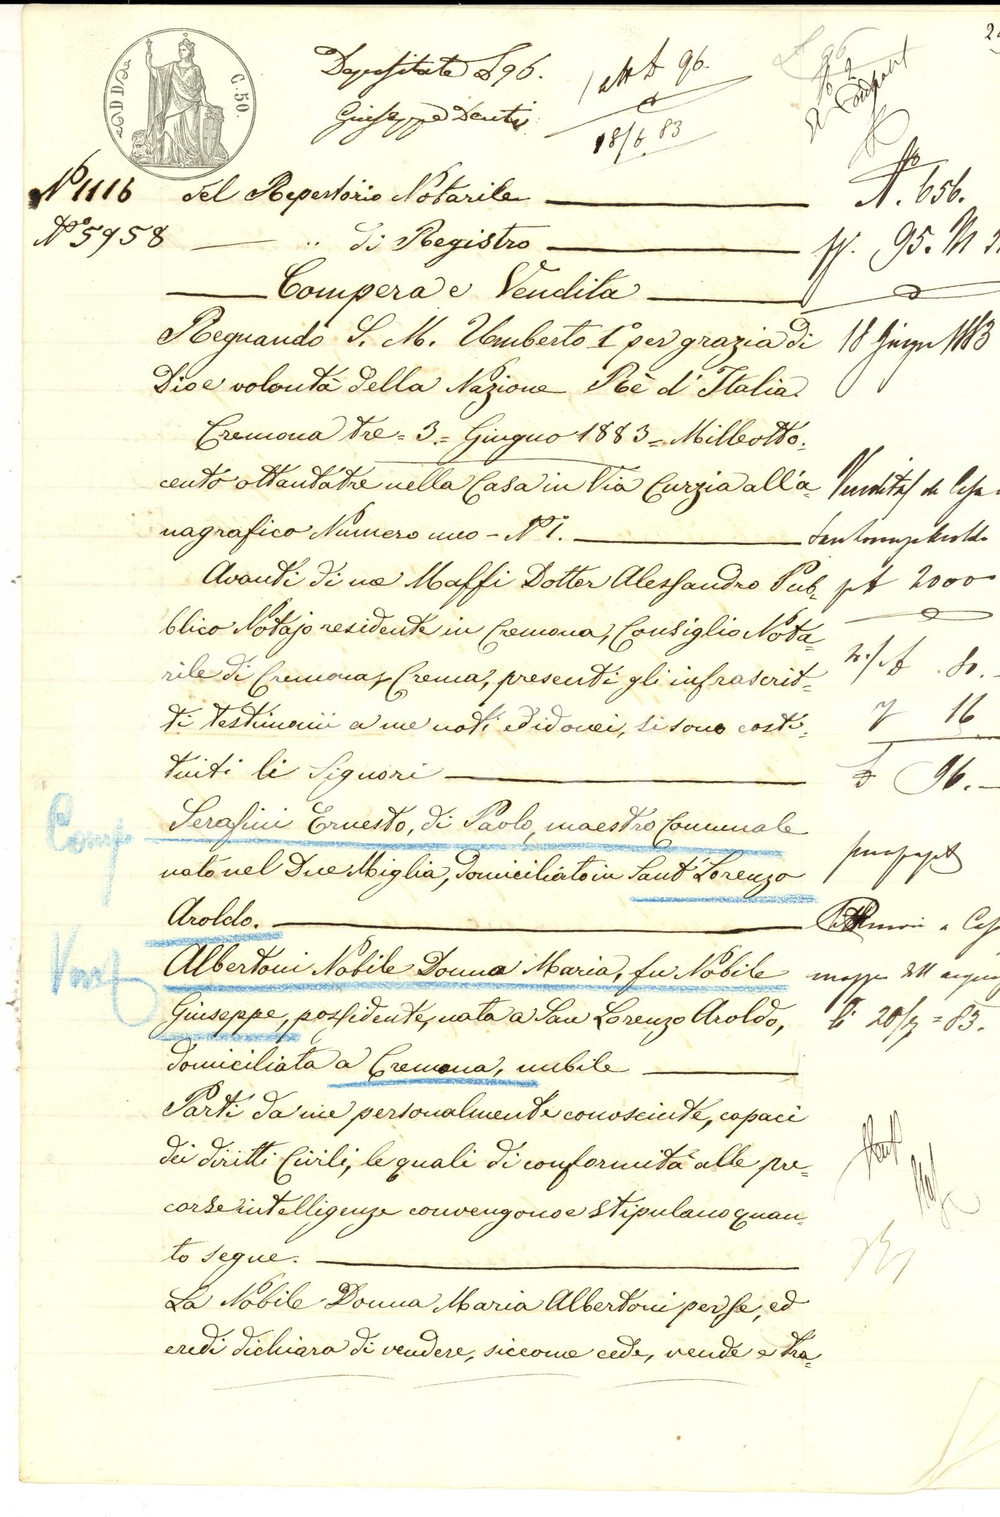 C. 50.
Depositate L 96.
Giuseppe Denti
96.
18/6. 83
N° 1116 del Repertorio Notarile
N° 5958 " di Registro
Compera e Vendita
Regnando S. M. Umberto 1° per grazia di
Dio e volontá della Nazione Rè d'Italia.
Cremona tre = 3. = Giugno 1883 = Milleotto=
cento ottantatre nella Casa in Via Curzia all'a=
nagrafico Numero uno - N° 1.
Avanti di me Maffi Dotter Alessandro Pub=
blico Notajo residente in Cremona, Consiglio Nota=
rile di Cremona e Crema, presenti gli infrascrit=
ti testimonii a me noti ed idonei, si sono costi=
tuiti li Signori
Serafini Ernesto, di Paolo, maestro Comunale
nato nel Due Miglia, domiciliato in Sant' Lorenzo
Aroldo.
Albertoni Nobile Donna Maria, fu Nobile
Giuseppe, possidente, nata a San Lorenzo Aroldo,
domiciliata a Cremona, nubile
Parti da me personalmente conosciute, capaci
dei diritti Civili, le quali di conformitá alle pre=
corse intelligenze convengono e stipulano quan=
to segue.
La Nobile Donna Maria Albertoni per se, ed
eredi dichiara di vendere, siccome cede, vende e tra=
Comp
N° 656.
95.
18 Giugno 1883
Vendita di Casa
2000
80.
16
£ 96.
a Casa
20/7 = 83.